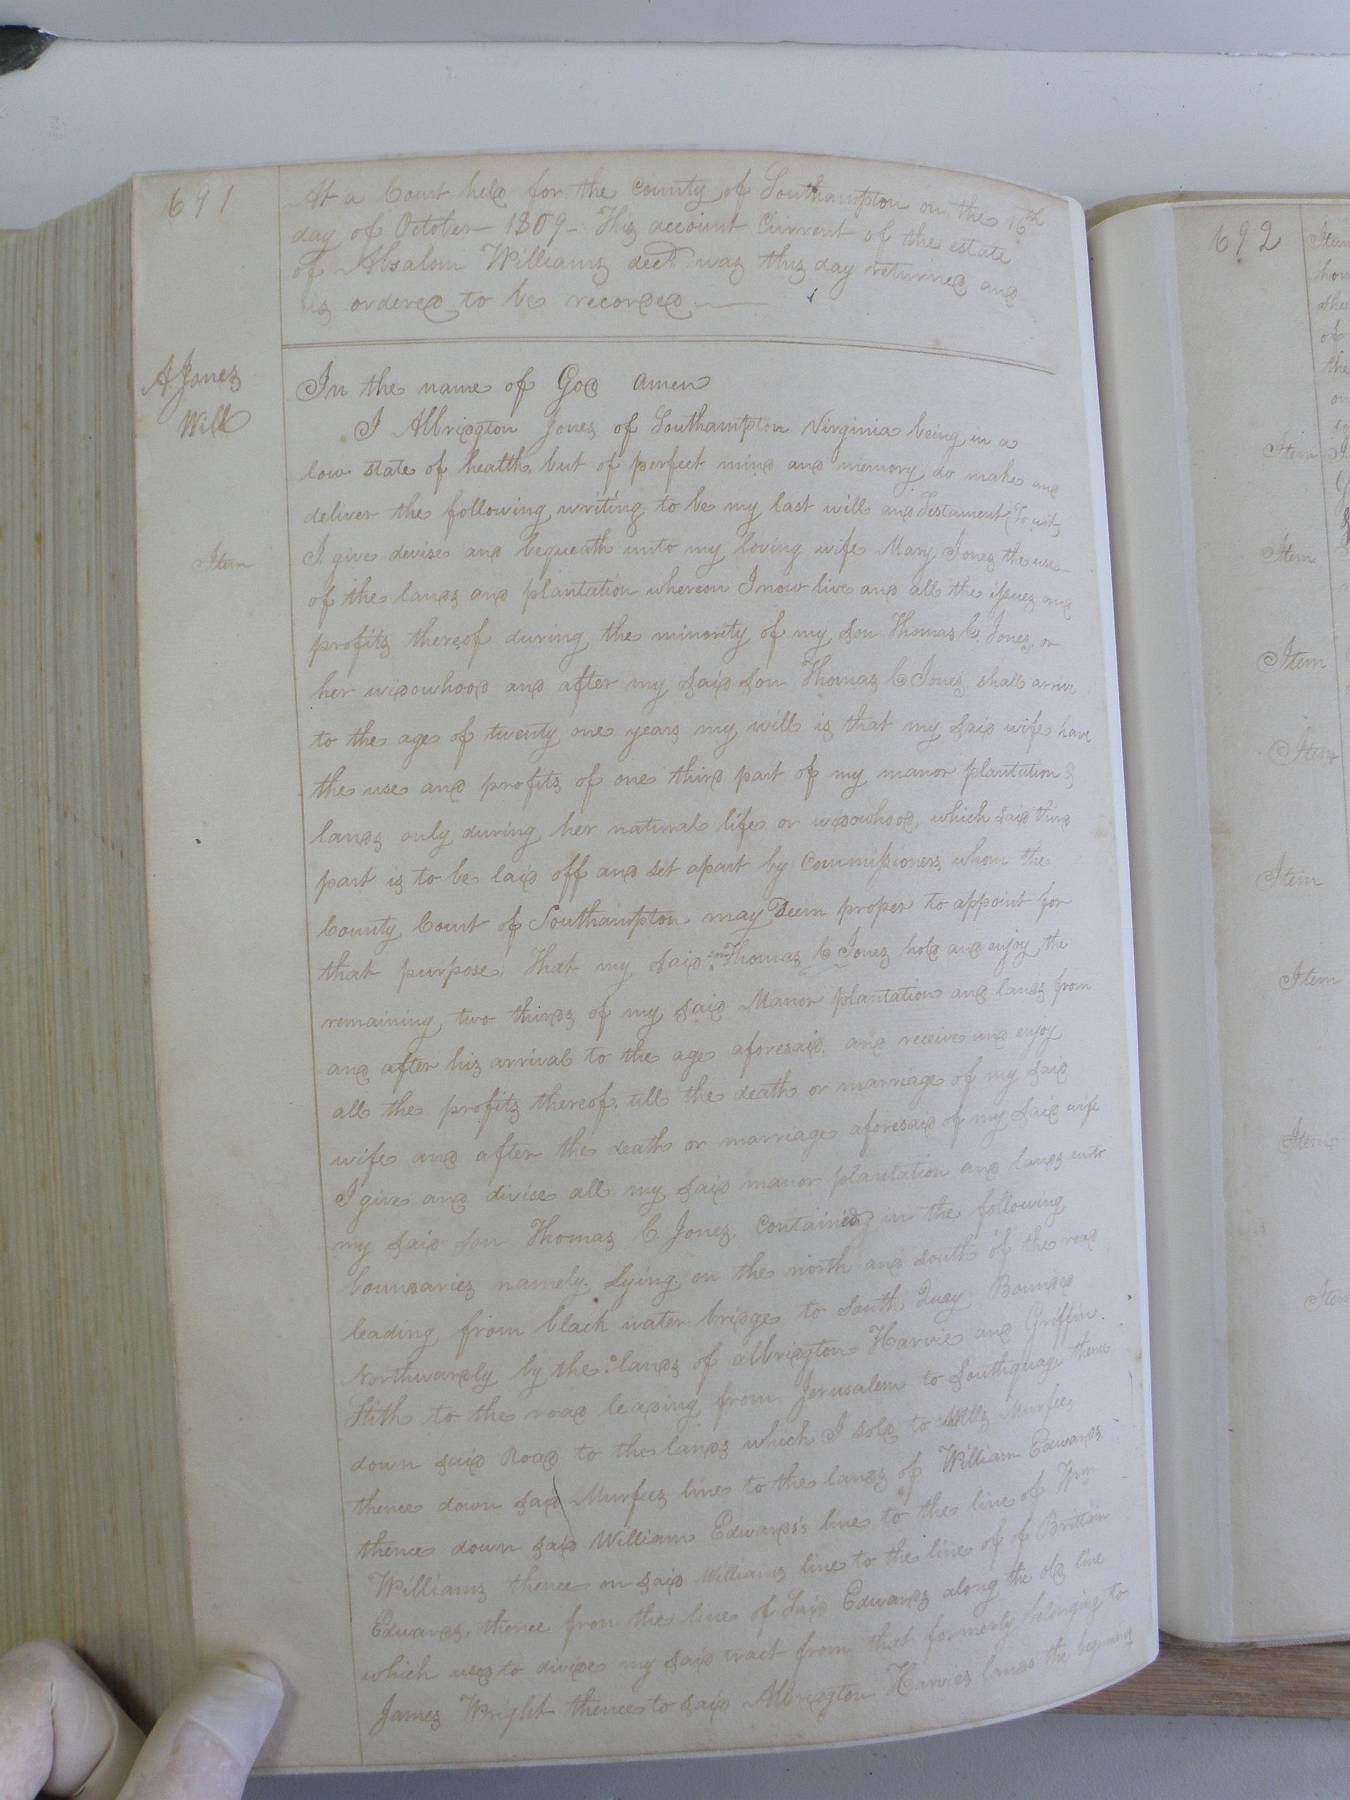 691
At a Court held for the county of Southampton on the 16th
day of October 1809 This account Current of the estate
of Absalom Williams decd was this day returned and
is ordered to be recorded
A Jones
Will
In the name of God amen
I Albridgton Jones of Southampton Virginia being in a
low state of health but of perfect mind and memory do make and
deliver the following writing to be my last will and Testament To wit,
Item
I give devise and bequeath unto my loving wife Mary Jones the use
of the lands and plantation whereon I now live and all the issues and
profits thereof during the minority of my son Thomas C. Jones, or
her widowhood and after my said son Thomas C Jones shall arrive
to the age of twenty one years my will is that my said wife have
the use and profits of one third part of my manor plantation &
lands only during her natural life or widowhood, which said third
part is to be laid off and set apart by Commissioners whom the
County Court of Southampton may Deem proper to appoint for
that purpose. That my said son Thomas C Jones hold and enjoy the
remaining two thirds of my said Manor plantation and lands from
and after his arrival to the age aforesaid, and receive and enjoy
all the profits thereof till the death or marriage of my said
wife and after the death or marriage aforesaid of my said wife
I give and divise all my said manor plantation and lands unto
my said son Thomas C. Jones, contained in the following
boundaries namely. Lying on the north and south of the road
leading from black water bridge to South Quay Bounded
Northwardly by the lands of albridgton Harvie and Griffin
Stith to the road leading from Jerusalem to Southquay thence
down said Road to the lands which I sold to Wills Murfees
thence down said Murfees line to the lands of William Edwards
thence down said William Edwards's line to the line of Wm
Williams thence on said Williams line to the line of of Brittain
Edwards, thence from the line of said Edwards along the old line
which used to divide my said tract from that formerly belonging to
James Wright thence to said Albridgton Harvies lands the beginning
692
Item
Item
Item
Item
Item
Item
Item
Item